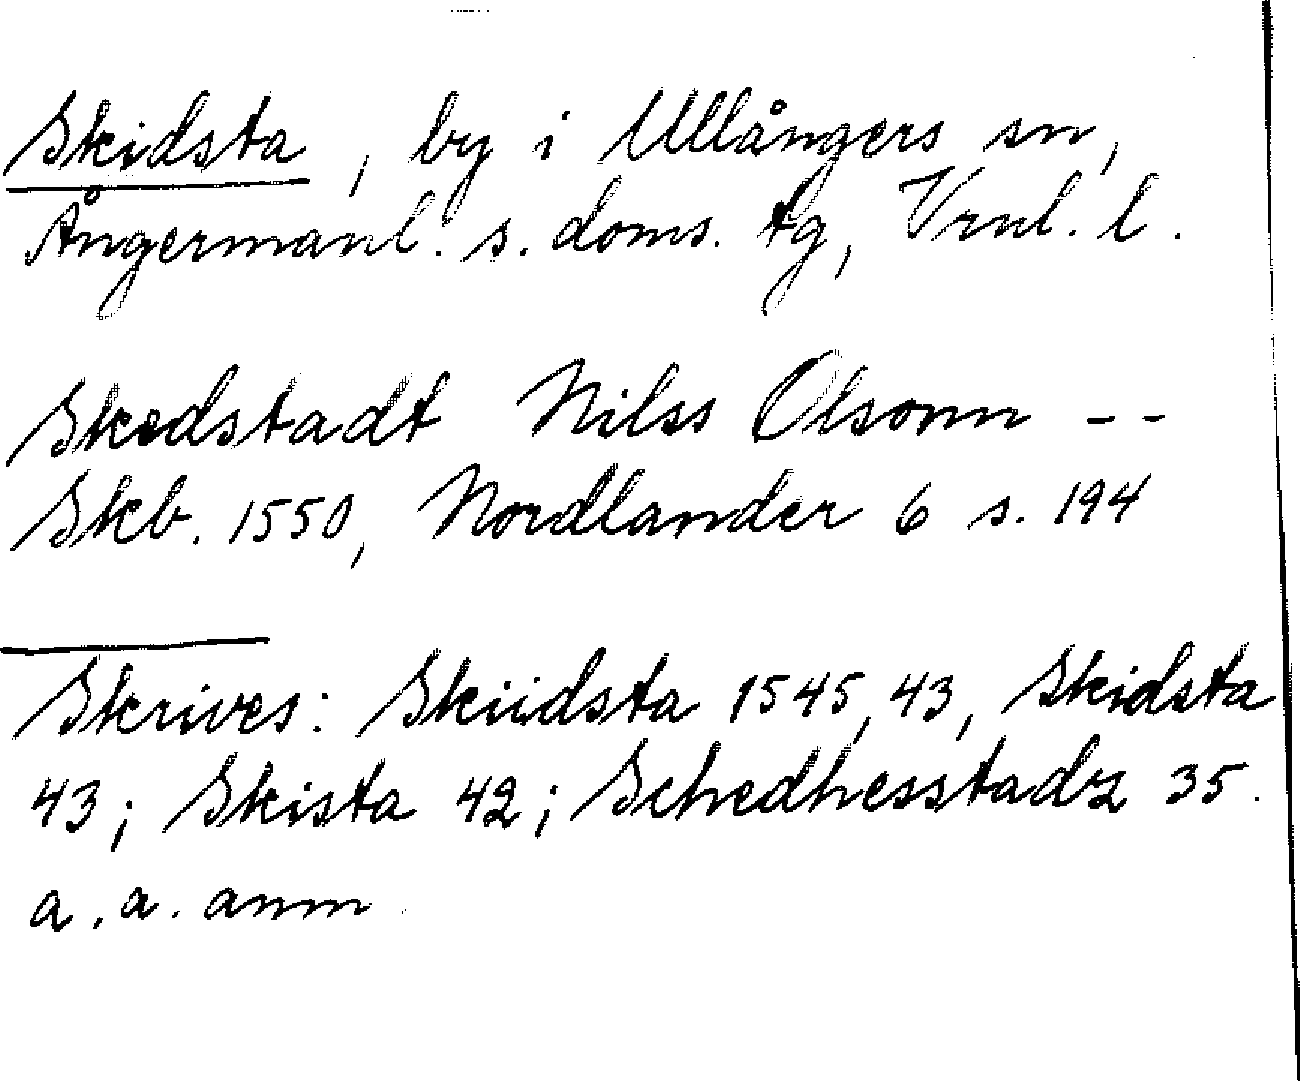 Skidsta, by i Ullångers sn,
Ångermanl. s. doms. tg, Vrnl. l.
Skedstadt Nilss Olsonn --
Skb. 1550, Nordlander 6 s. 194
Skrives: Skiidsta 1545, 43, Skidsta
43; Skista 42; Schedhesstadz 35.
a. a. anm